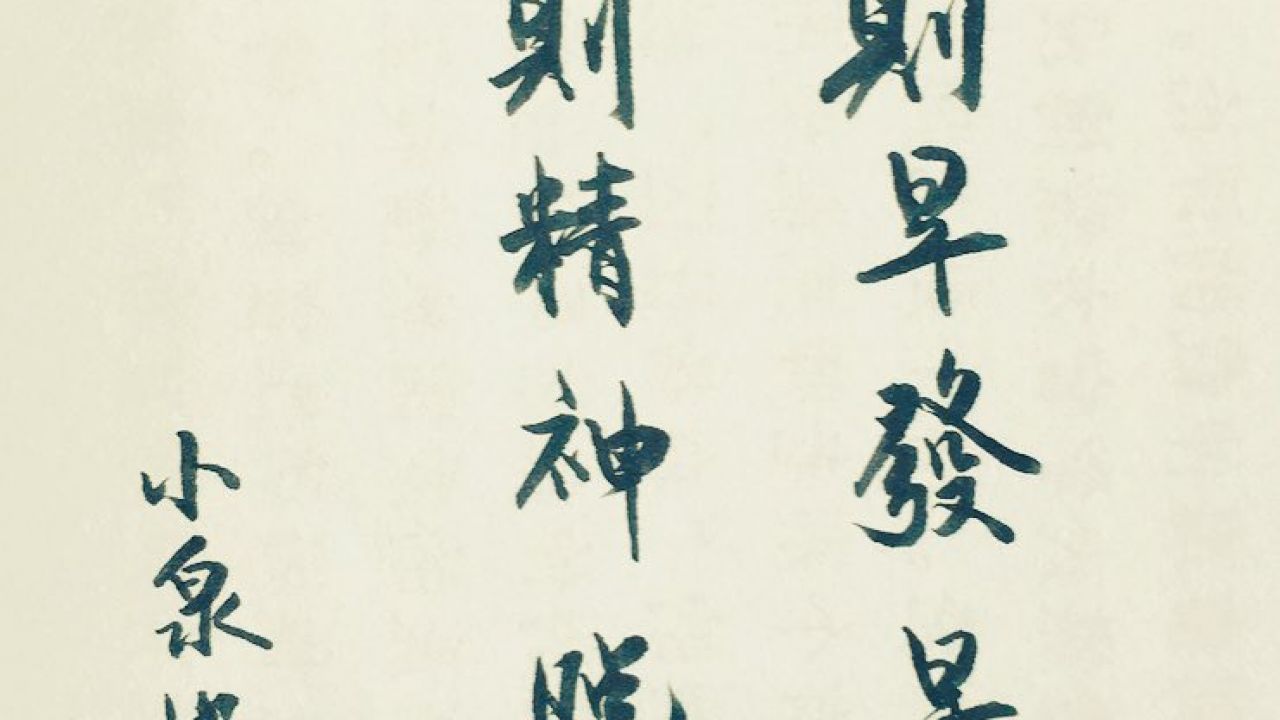 則早發
則精神
小泉